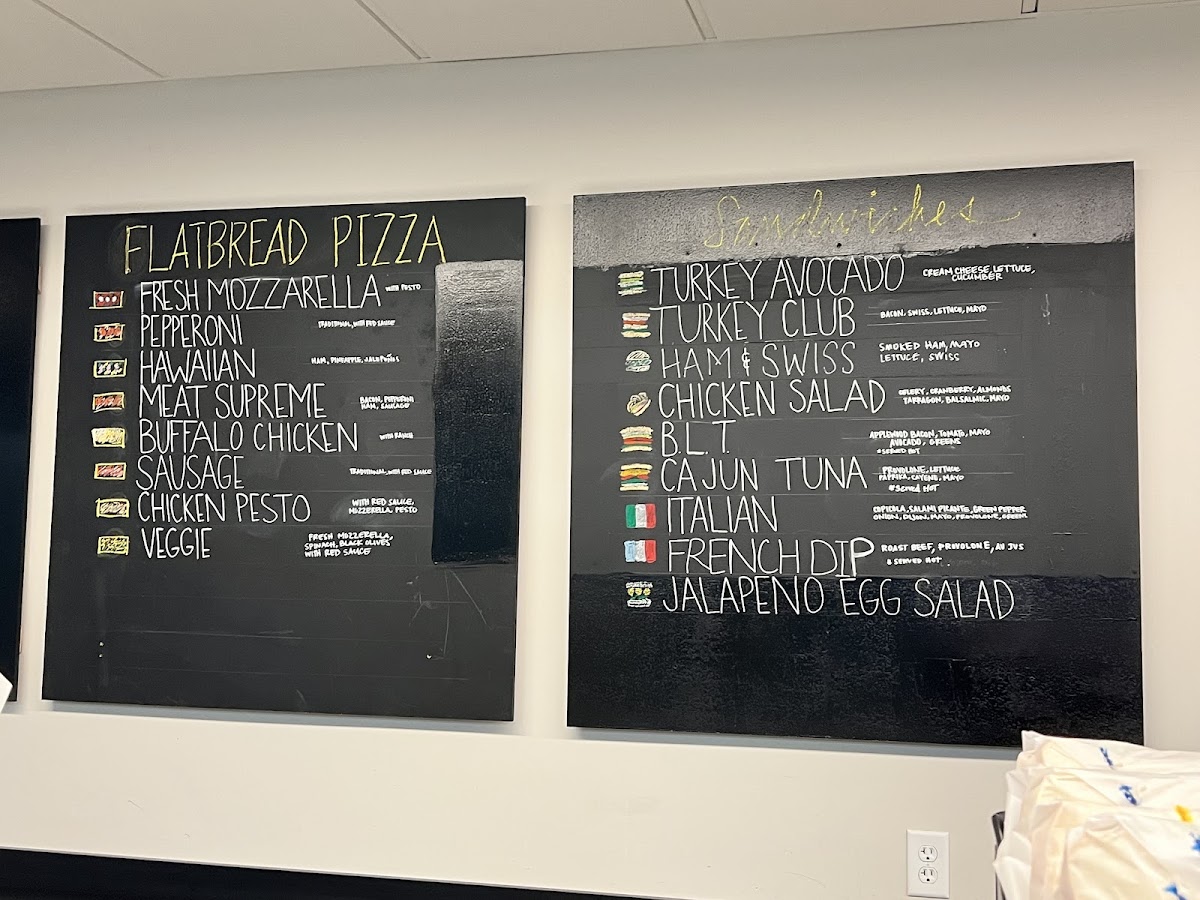 FLATBREAD PIZZA
FRESH MOZZARELLA
WITH PESTO
PEPPERONI
TRADITIONAL, WITH RED SAUCE
HAWAIIAN
HAM, PINEAPPLE, JALAPEÑOS
MEAT SUPREME
BACON, PEPPERONI
HAM, SAUSAGE
BUFFALO CHICKEN
WITH RANCH
SAUSAGE
TRADITIONAL, WITH RED SAUCE
CHICKEN PESTO
WITH RED SAUCE,
MOZZERELLA, PESTO
VEGGIE
FRESH MOZZERELLA,
SPINACH, BLACK OLIVES
WITH RED SAUCE
Sandwiches
TURKEY AVOCADO
CREAM CHEESE, LETTUCE,
CUCUMBER
TURKEY CLUB
BACON, SWISS, LETTUCE, MAYO
HAM & SWISS
SMOKED HAM, MAYO
LETTUCE, SWISS
CHICKEN SALAD
CELERY, CRANBERRY, ALMONDS
TARRAGON, BALSALMIC, MAYO
B.L.T.
APPLEWOOD BACON, TOMATO, MAYO
AVOCADO, GREENS
*SERVED HOT
CAJUN TUNA
PROVOLONE, LETTUCE
PAPRIKA, CAYENE, MAYO
*SERVED HOT
ITALIAN
COPICOLA, SALAMI, GREEN PEPPER
ONION, DIJON, MAYO, PROVOLONE, GREENS
FRENCH DIP
ROAST BEEF, PROVOLONE, AU JUS
*SERVED HOT
JALAPENO EGG SALAD